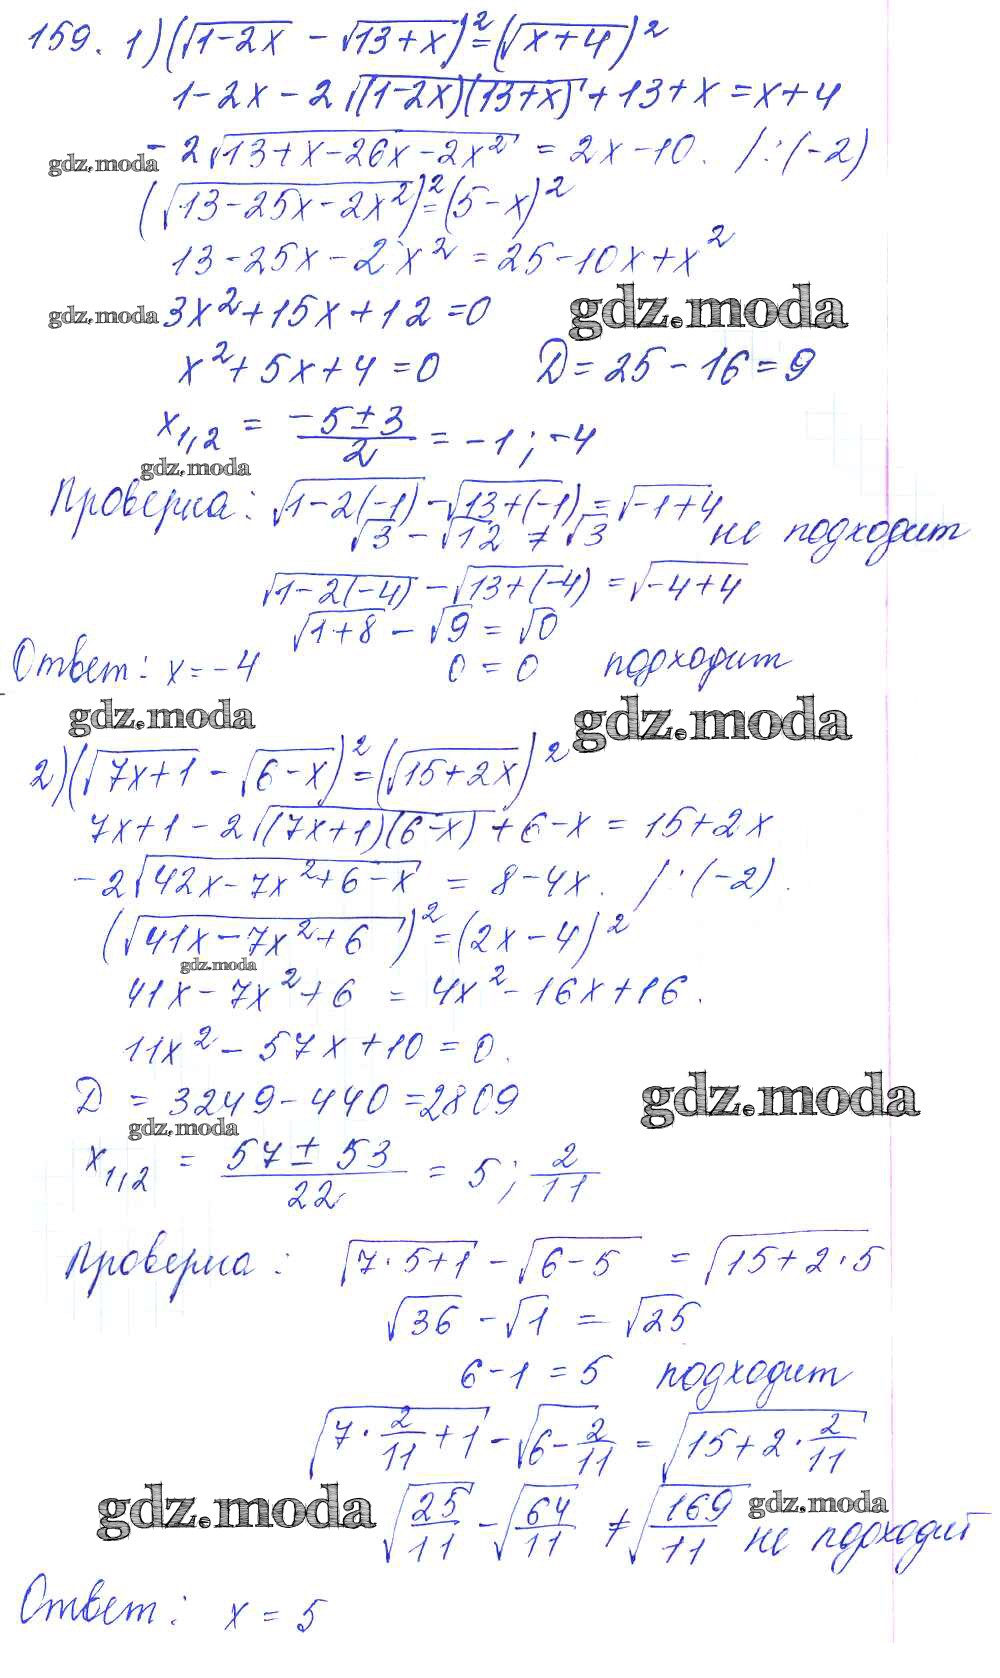 159. 1) (√1-2x - √13+x)² = (√x+4)²
1-2x-2√(1-2x)(13+x) + 13+x = x+4
gdz.moda -2√13+x-26x-2x² = 2x-10. /:(-2)
(√13-25x-2x²)² = (5-x)²
13-25x-2x² = 25-10x+x²
gdz.moda 3x²+15x+12=0 gdz.moda
x²+5x+4=0 D=25-16=9
x₁,₂ = (-5±3)/2 = -1; -4
gdz.moda
Проверка: √1-2(-1) - √13+(-1) = √-1+4
√3 - √12 ≠ √3 не подходит
√1-2(-4) - √13+(-4) = √-4+4
√1+8 - √9 = √0
Ответ: x=-4 0=0 подходит
gdz.moda gdz.moda
2) (√7x+1 - √6-x)² = (√15+2x)²
7x+1-2√(7x+1)(6-x) + 6-x = 15+2x
-2√42x-7x²+6-x = 8-4x. /:(-2).
(√41x-7x²+6)² = (2x-4)²
gdz.moda
41x-7x²+6 = 4x²-16x+16.
11x²-57x+10=0.
D = 3249-440=2809 gdz.moda
gdz.moda
x₁,₂ = (57±53)/22 = 5; 2/11
Проверка: √7·5+1 - √6-5 = √15+2·5
√36 - √1 = √25
6-1=5 подходит
√7·2/11+1 - √6-2/11 = √15+2·2/11
gdz.moda √25/11 - √64/11 ≠ √169/11 gdz.moda не подходит
Ответ: x = 5